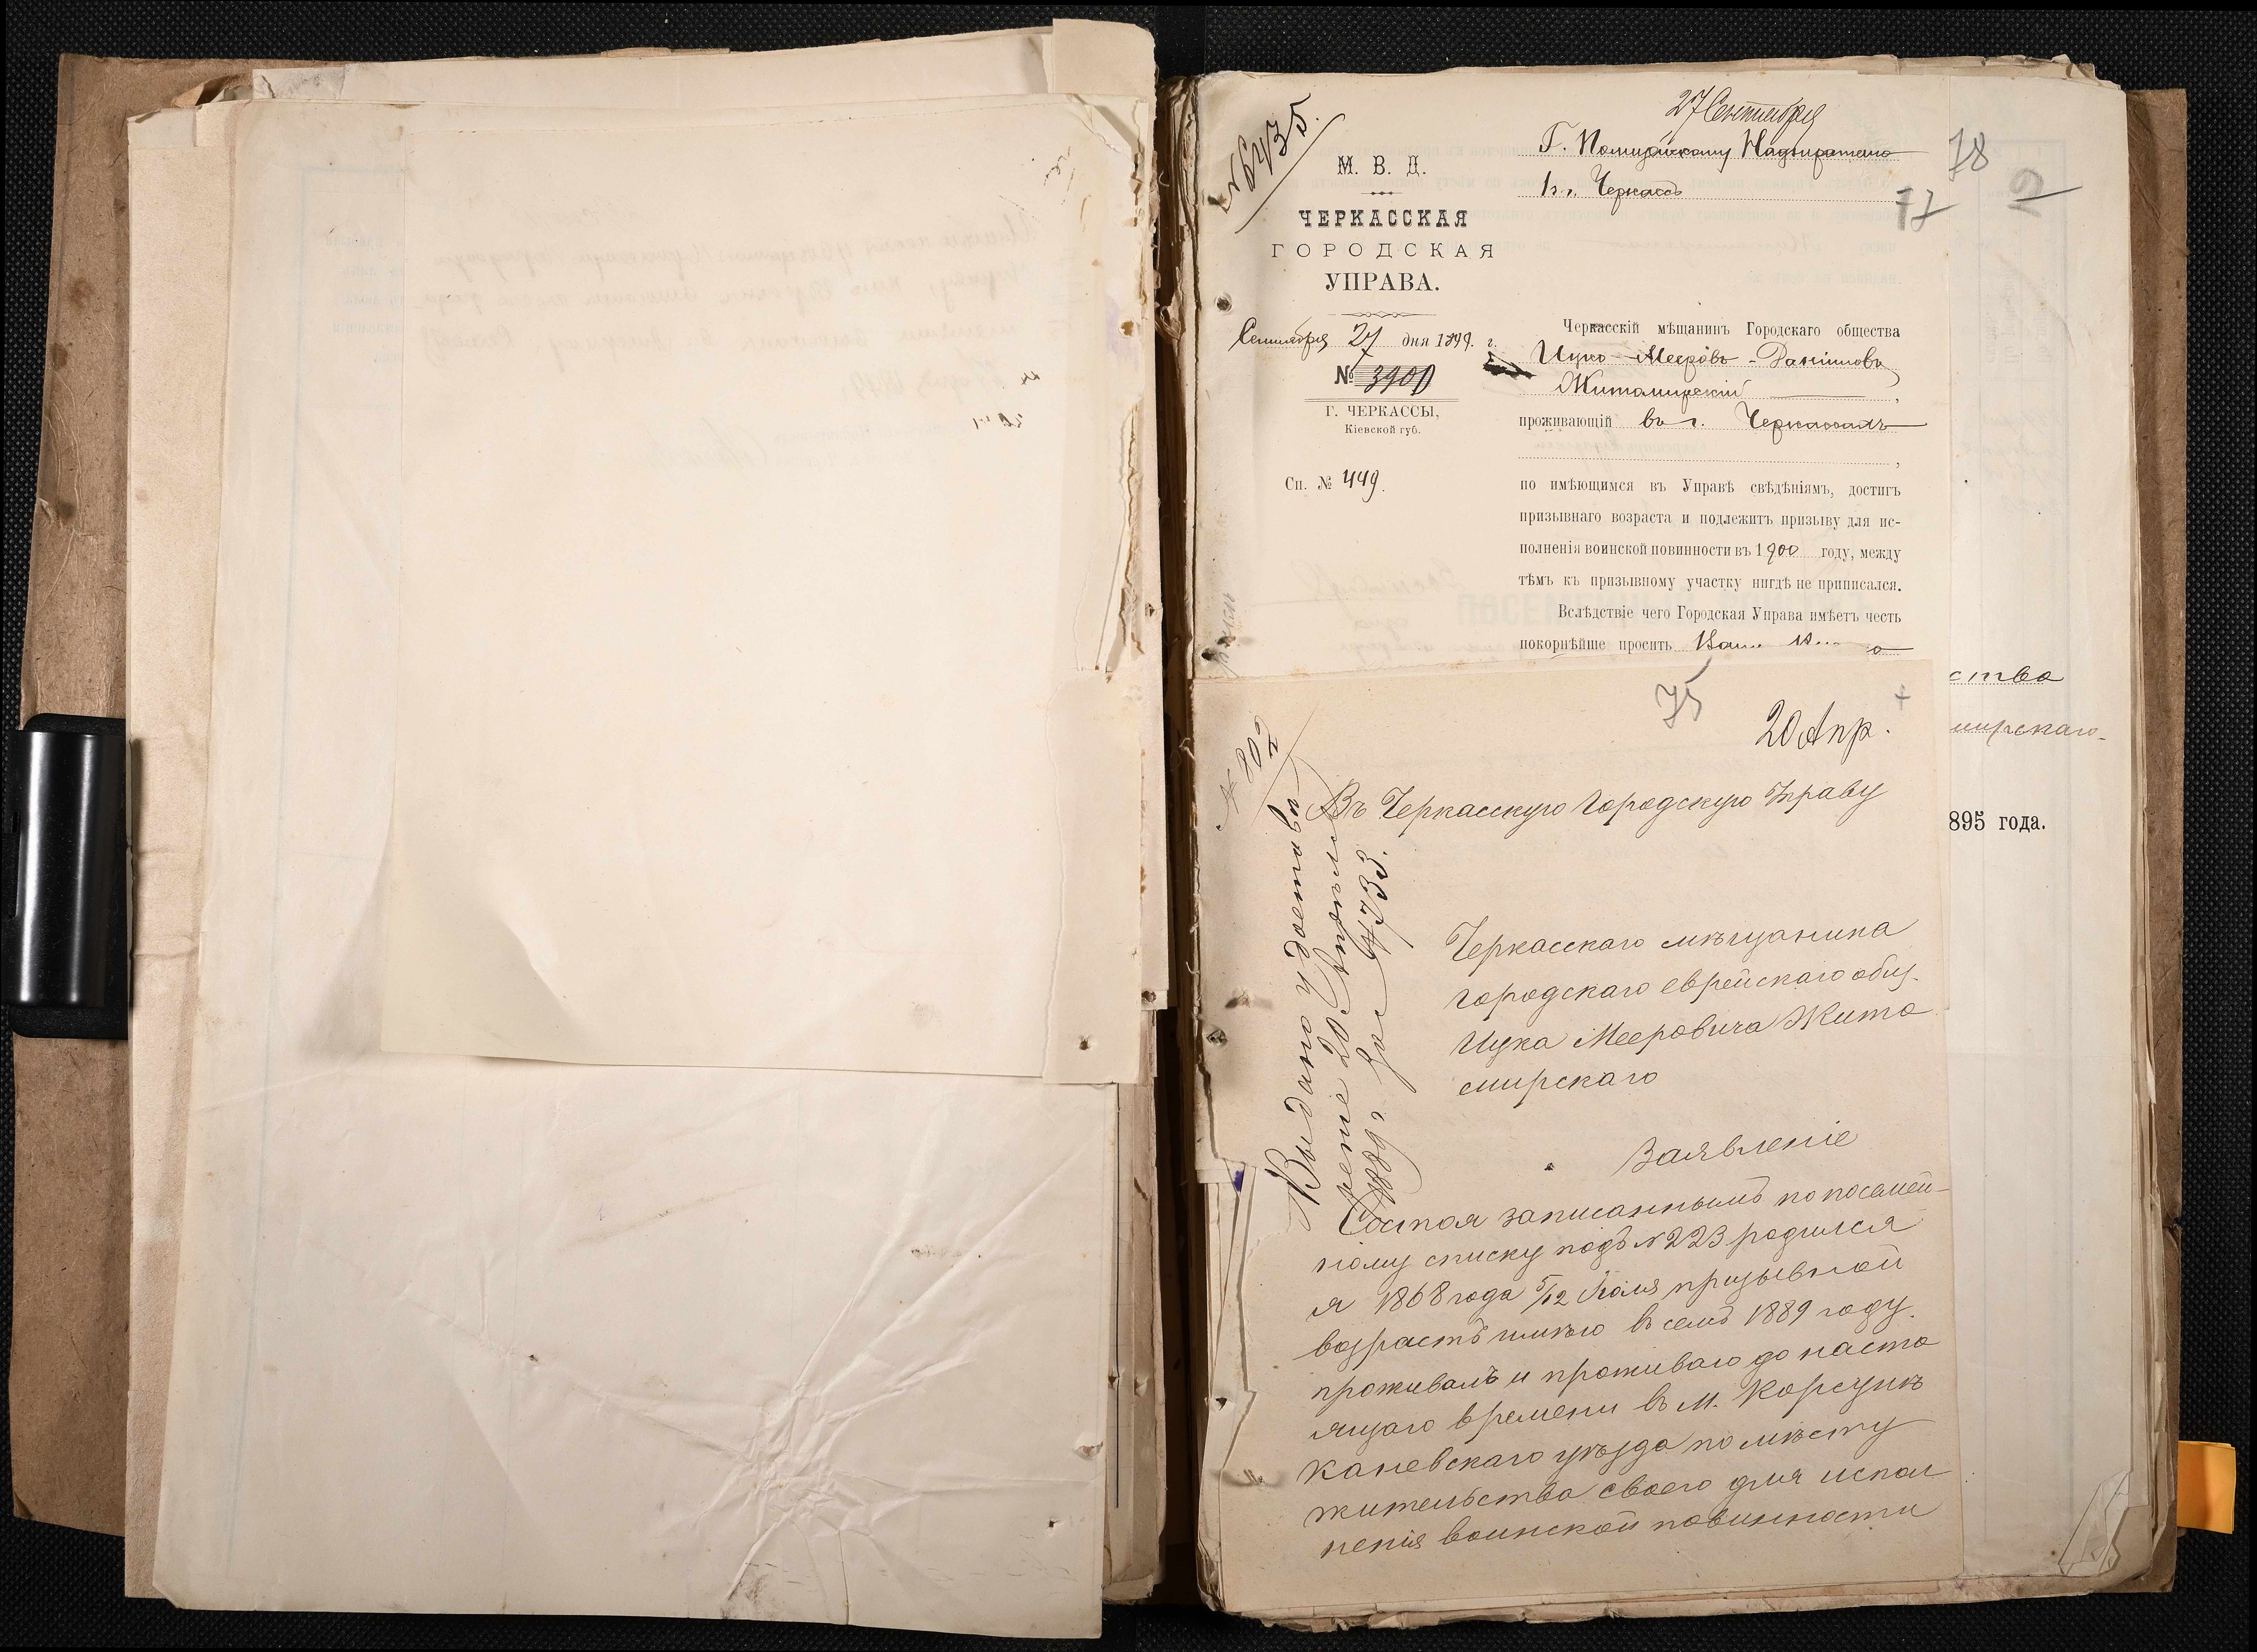 № 6435.
М. В. Д.
ЧЕРКАССКАЯ
ГОРОДСКАЯ
УПРАВА.
Сентября 27 дня 1899. г.
№ 3900
Г. ЧЕРКАССЫ,
Кіевской губ.
Сп. № 449.
27 Сентября
Г. Полицейскому Надзирателю
въ г. Черкассъ
78
77
2
Черкасскій мѣщанинъ Городскаго общества
Ицко-Мееровъ-Даніиловъ
Житомирскій,
проживающій въ г. Черкассахъ
,
по имѣющимся въ Управѣ свѣдѣніямъ, достигъ
призывнаго возраста и подлежитъ призыву для ис-
полненія воинской повинности въ 1900 году, между
тѣмъ къ призывному участку нигдѣ не приписался.
Вслѣдствіе чего Городская Управа имѣетъ честь
покорнѣйше просить
ства
мирскаго
895 года.
75
20 Апр.
№ 802
Въ Черкасскую Городскую Управу
Выдано удостовѣ
реніе 20 Апрѣля
1889 г. за № 733.
Черкасскаго мѣщанина
городскаго еврейскаго общ.
Ицка Мееровича Жито
мирскаго
Заявленіе
Состоя записаннымъ по посемей-
ному списку подъ № 223 родился
я 1868 года 5/12 Іюля призывной
возрастъ имѣю въ семъ 1889 году.
проживалъ и проживаю до насто
ящаго времени въ м. Корсунѣ
Каневскаго уѣзда по мѣсту
жительства своего для испол
ненія воинской повинности